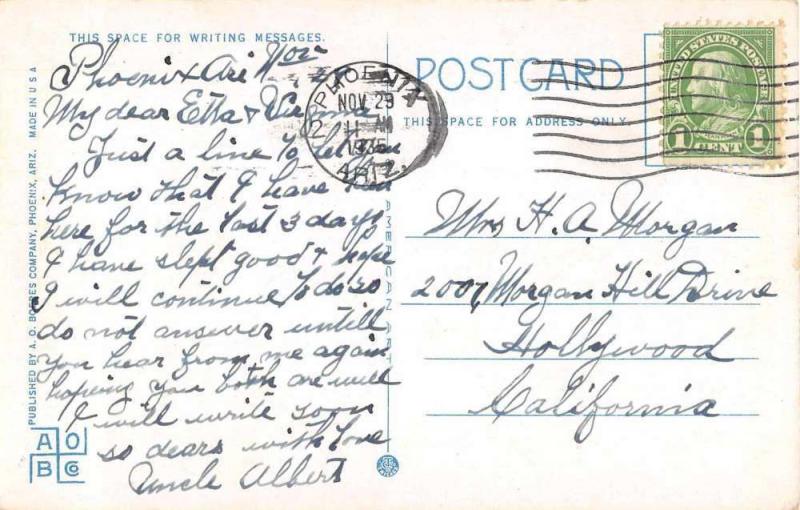 THIS SPACE FOR WRITING MESSAGES.
Phoenix Ari Nov
My dear Etta &
Just a line to let you
know that I have been
here for the last 3 days
I have slept good & hope
I will continue to do so
do not answer untill
you hear from me again
hoping you both are well
I will write soon
so dears with love
Uncle Albert
PUBLISHED BY A. O. BOERES COMPANY, PHOENIX, ARIZ. MADE IN U S A
A O
B Co
AMERICAN ART
PHOENIX
NOV 29
11 AM
1935
ARIZ.
POST CARD
THIS SPACE FOR ADDRESS ONLY.
UNITED STATES POSTAGE
1 CENT 1
Mrs H. A. Morgan
2007, Morgan Hill Drive
Hollywood
California